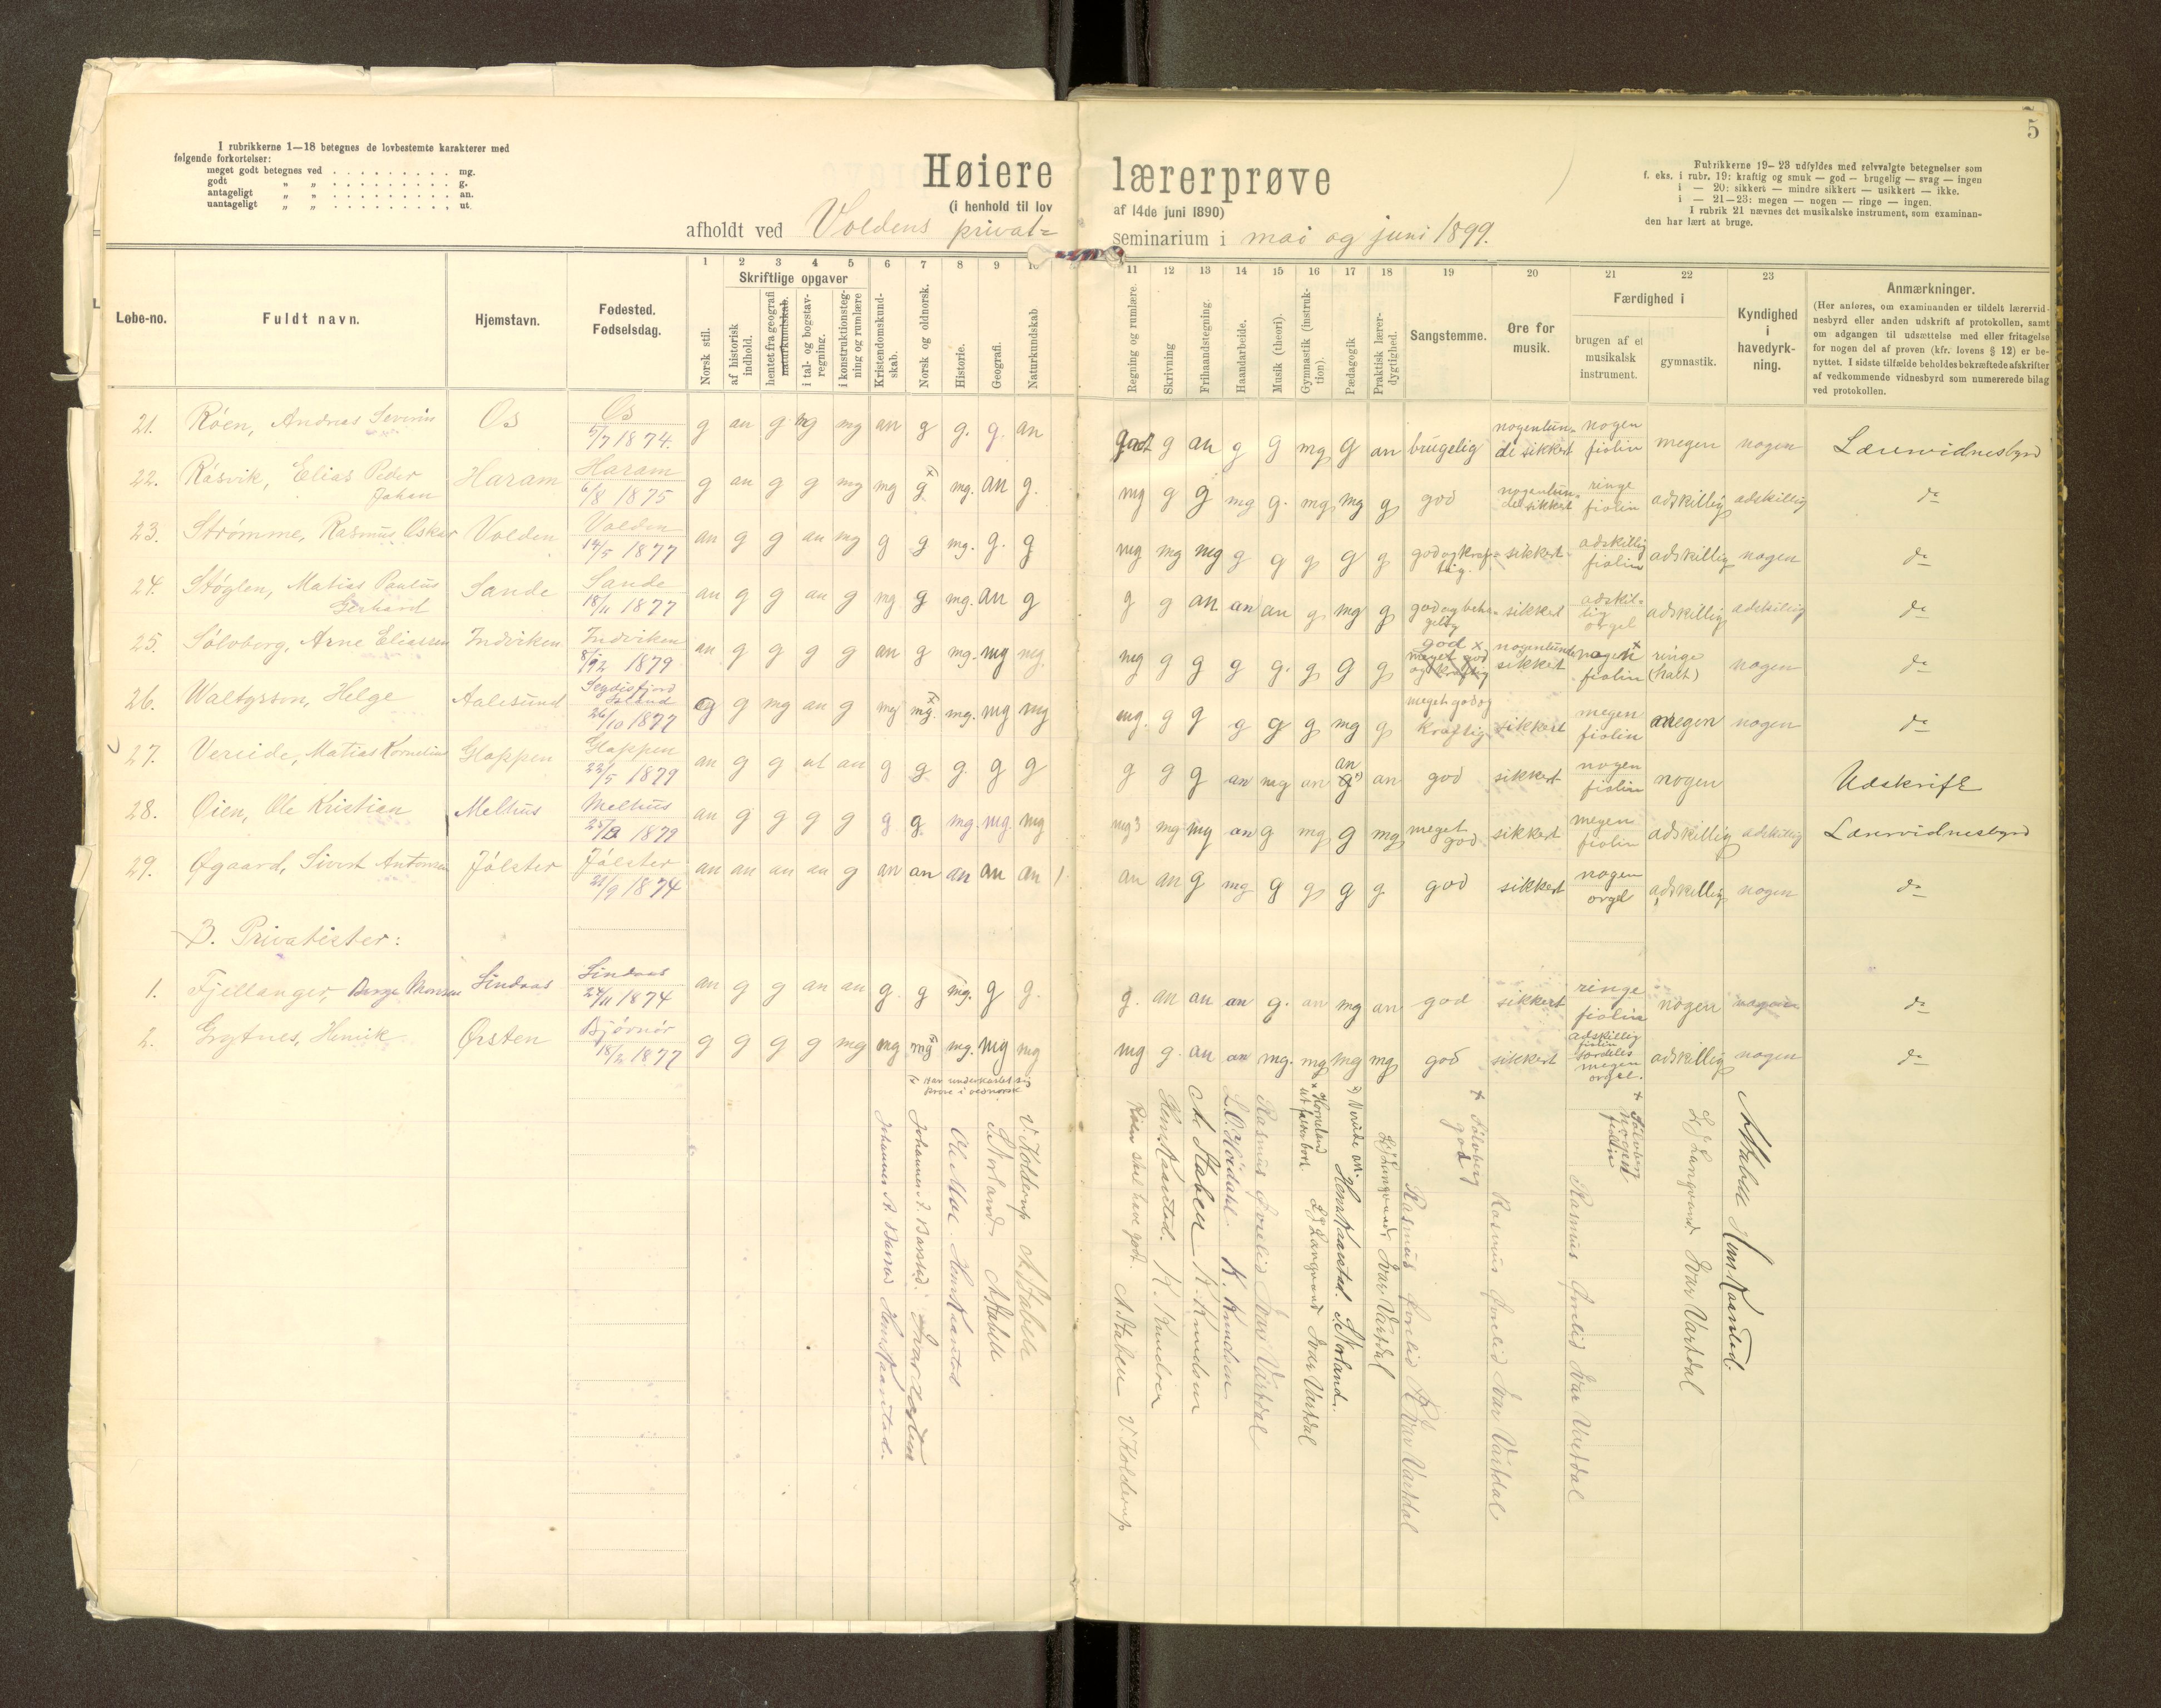 5
I rubrikkerne 1—18 betegnes de lovbestemte karakterer med
følgende forkortelser:
meget godt betegnes ved . . . . . . . . . mg.
godt „ „ . . . . . . . . . g.
antageligt „ „ . . . . . . . . . an.
uantageligt „ „ . . . . . . . . . ut.
Høiere lærerprøve
(i henhold til lov af 14de juni 1890)
afholdt ved Voldens privat= seminarium i mai og juni 1899.
Rubrikkerne 19—23 udfyldes med selvvalgte betegnelser som
f. eks. i rubr. 19: kraftig og smuk — god — brugelig — svag — ingen
i — 20: sikkert — mindre sikkert — usikkert — ikke.
i — 21—23: megen — nogen — ringe — ingen.
I rubrik 21 nævnes det musikalske instrument, som examinan-
den har lært at bruge.
Løbe-no.
Fuldt navn.
Hjemstavn.
Fødested.
Fødselsdag.
1 Norsk stil.
Skriftlige opgaver
2 af historisk indhold.
3 hentet fra geografi naturkundskab.
4 i tal- og bogstav-regning.
5 i konstruktionsteg-ning og rumlære
6 Kristendomskund-skab.
7 Norsk og oldnorsk.
8 Historie.
9 Geografi.
10 Naturkundskab
11 Regning og rumlære.
12 Skrivning
13 Frihaandstegning.
14 Haandarbeide.
15 Musik (theori).
16 Gymnastik (instruk-tion).
17 Pædagogik
18 Praktisk lærer-dygtighed.
19 Sangstemme.
20 Øre for musik.
Færdighed i
21 brugen af et musikalsk instrument.
22 gymnastik.
23 Kyndighed i havedyrk-ning.
Anmærkninger.
(Her anføres, om examinanden er tildelt lærervid-
nesbyrd eller anden udskrift af protokollen, samt
om adgangen til udsættelse med eller fritagelse
for nogen del af prøven (kfr. lovens § 12) er be-
nyttet. I sidste tilfælde beholdes bekræftede afskrifter
af vedkommende vidnesbyrd som numererede bilag
ved protokollen.
21. Røen, Andreas Severin Os Os 5/7 1874. g an g mg mg an g g. g. an godt g an g g mg g an brugelig nogenlun-de sikkert nogen fiolin megen nogen Lærervidnesbyrd
22. Råsvik, Elias Peder Johan Haram Haram 6/8 1875 g an g g mg mg g x mg. an g. mg g g mg g. mg mg g god nogenlun-de sikkert ringe fiolin adskillig adskillig do
23. Strømme, Rasmus Oskar Volden Volden 14/5 1877 an g g an mg g g mg. g. g mg mg mg g g g g g god og kraf-tig. sikkert adskillig fiolin adskillig nogen do
24. Støylen, Matias Paulus Gerhard Sande Sande 18/11 1877 an g g an g mg g mg. an g g g an an an g mg g god og beha-gelig sikkert adskil-lig orgel adskillig adskillig do
25. Sølvberg, Arne Eliassen Indviken Indviken 8/12 1879 an g g g g an g mg. mg mg. mg g g g g. g g g god x meget god og kraftig nogenlunde sikkert nogen x fiolin ringe (halt) nogen do
26. Waltysson, Helge Aalesund Seydisfjord Island 26/10 1877 g g mg an g mg mg. x mg. mg mg mg. g g g g g mg g meget god og kraftig sikkert megen fiolin megen nogen do
27. Vereide, Matias Kornelius Gloppen Gloppen 22/5 1879 an g g ut an g g g. g g g g g an mg an an g an god sikkert nogen fiolin nogen Udskrift
28. Øien, Ole Kristian Melhus Melhus 1879 an g g g g g g. mg. mg. mg mg mg mg an g mg g mg meget god sikkert megen fiolin adskillig adskillig Lærervidnesbyrd
29. Øgaard, Sivert Antonsen Jølster Jølster 21/9 1874 an an an an g an an an an an an an g mg g g g g. god sikkert nogen orgel adskillig nogen do
B. Privatister:
1. Fjellanger, Børge Monsen Lindaas Lindaas 24/11 1874 an g g an an g g mg. g g. g. an an an g. an mg an god sikkert ringe fiolin nogen nogen do
2. Grytnes, Henrik Ørsten Bjørnør 18/2 1877 g g g g mg mg mg x mg. mg mg mg g. an an mg. mg mg mg god sikkert adskillig fiolin særdeles megen orgel. adskillig nogen do
x Har underkastet sig prøve i oldnorsk
Henr. Kaarstad.
V. Kolderup A. Stabell
Røen skal have godt.
Henr. Kaarstad. K. Knudsen
K. Knudsen
K. Knudsen
Rasmus Ivar Vartdal
Ivar Vartdal
2) Vereide an. Henr. Kaarstad.
Ivar Vartdal
x Sølvberg god
Rasmus Ivar Vartdal
x Sølvberg nogen fiolin
Rasmus Ivar Vartdal
Ivar Vartdal
A. Stabell Henr. Kaarstad.